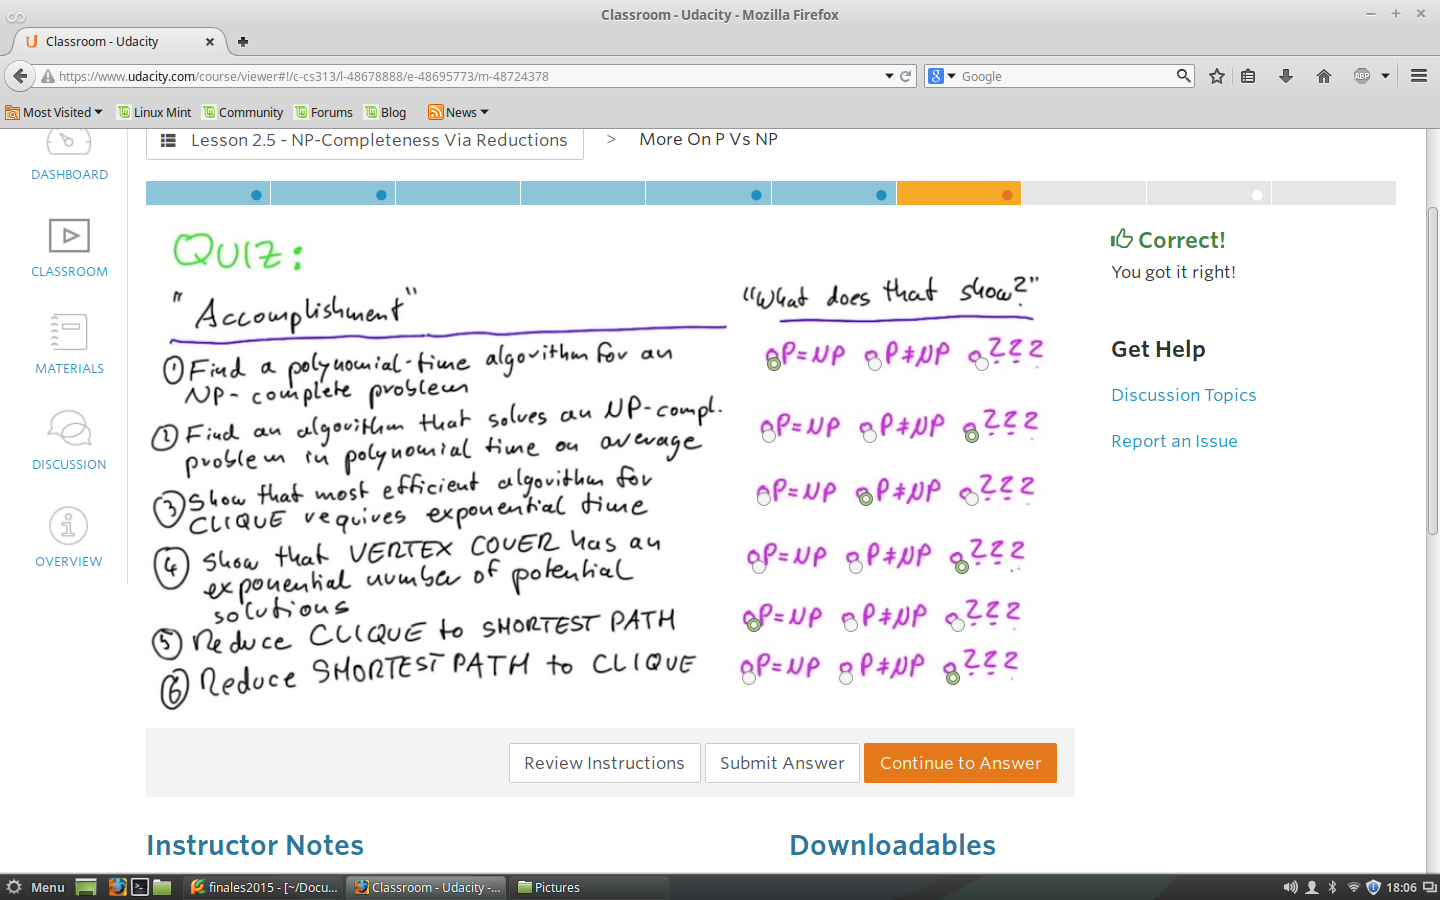 Classroom - Udacity - Mozilla Firefox
Classroom - Udacity
https://www.udacity.com/course/viewer#!/c-cs313/l-48678888/e-48695773/m-48724378
Google
ABP
Most Visited
Linux Mint
Community
Forums
Blog
News
Lesson 2.5 - NP-Completeness Via Reductions > More On P Vs NP
DASHBOARD
CLASSROOM
MATERIALS
DISCUSSION
OVERVIEW
QUIZ:
"Accomplishment"
"What does that show?"
① Find a polynomial-time algorithm for an
NP-complete problem
P=NP P≠NP ???
② Find an algorithm that solves an NP-compl.
problem in polynomial time on average
P=NP P≠NP ???
③ Show that most efficient algorithm for
CLIQUE requires exponential time
P=NP P≠NP ???
④ Show that VERTEX COVER has an
exponential number of potential
solutions
P=NP P≠NP ???
⑤ Reduce CLIQUE to SHORTEST PATH
P=NP P≠NP ???
⑥ Reduce SHORTEST PATH to CLIQUE
P=NP P≠NP ???
Correct!
You got it right!
Get Help
Discussion Topics
Report an Issue
Review Instructions
Submit Answer
Continue to Answer
Instructor Notes
Downloadables
Menu
finales2015 - [~/Docu...
Classroom - Udacity -...
Pictures
18:06